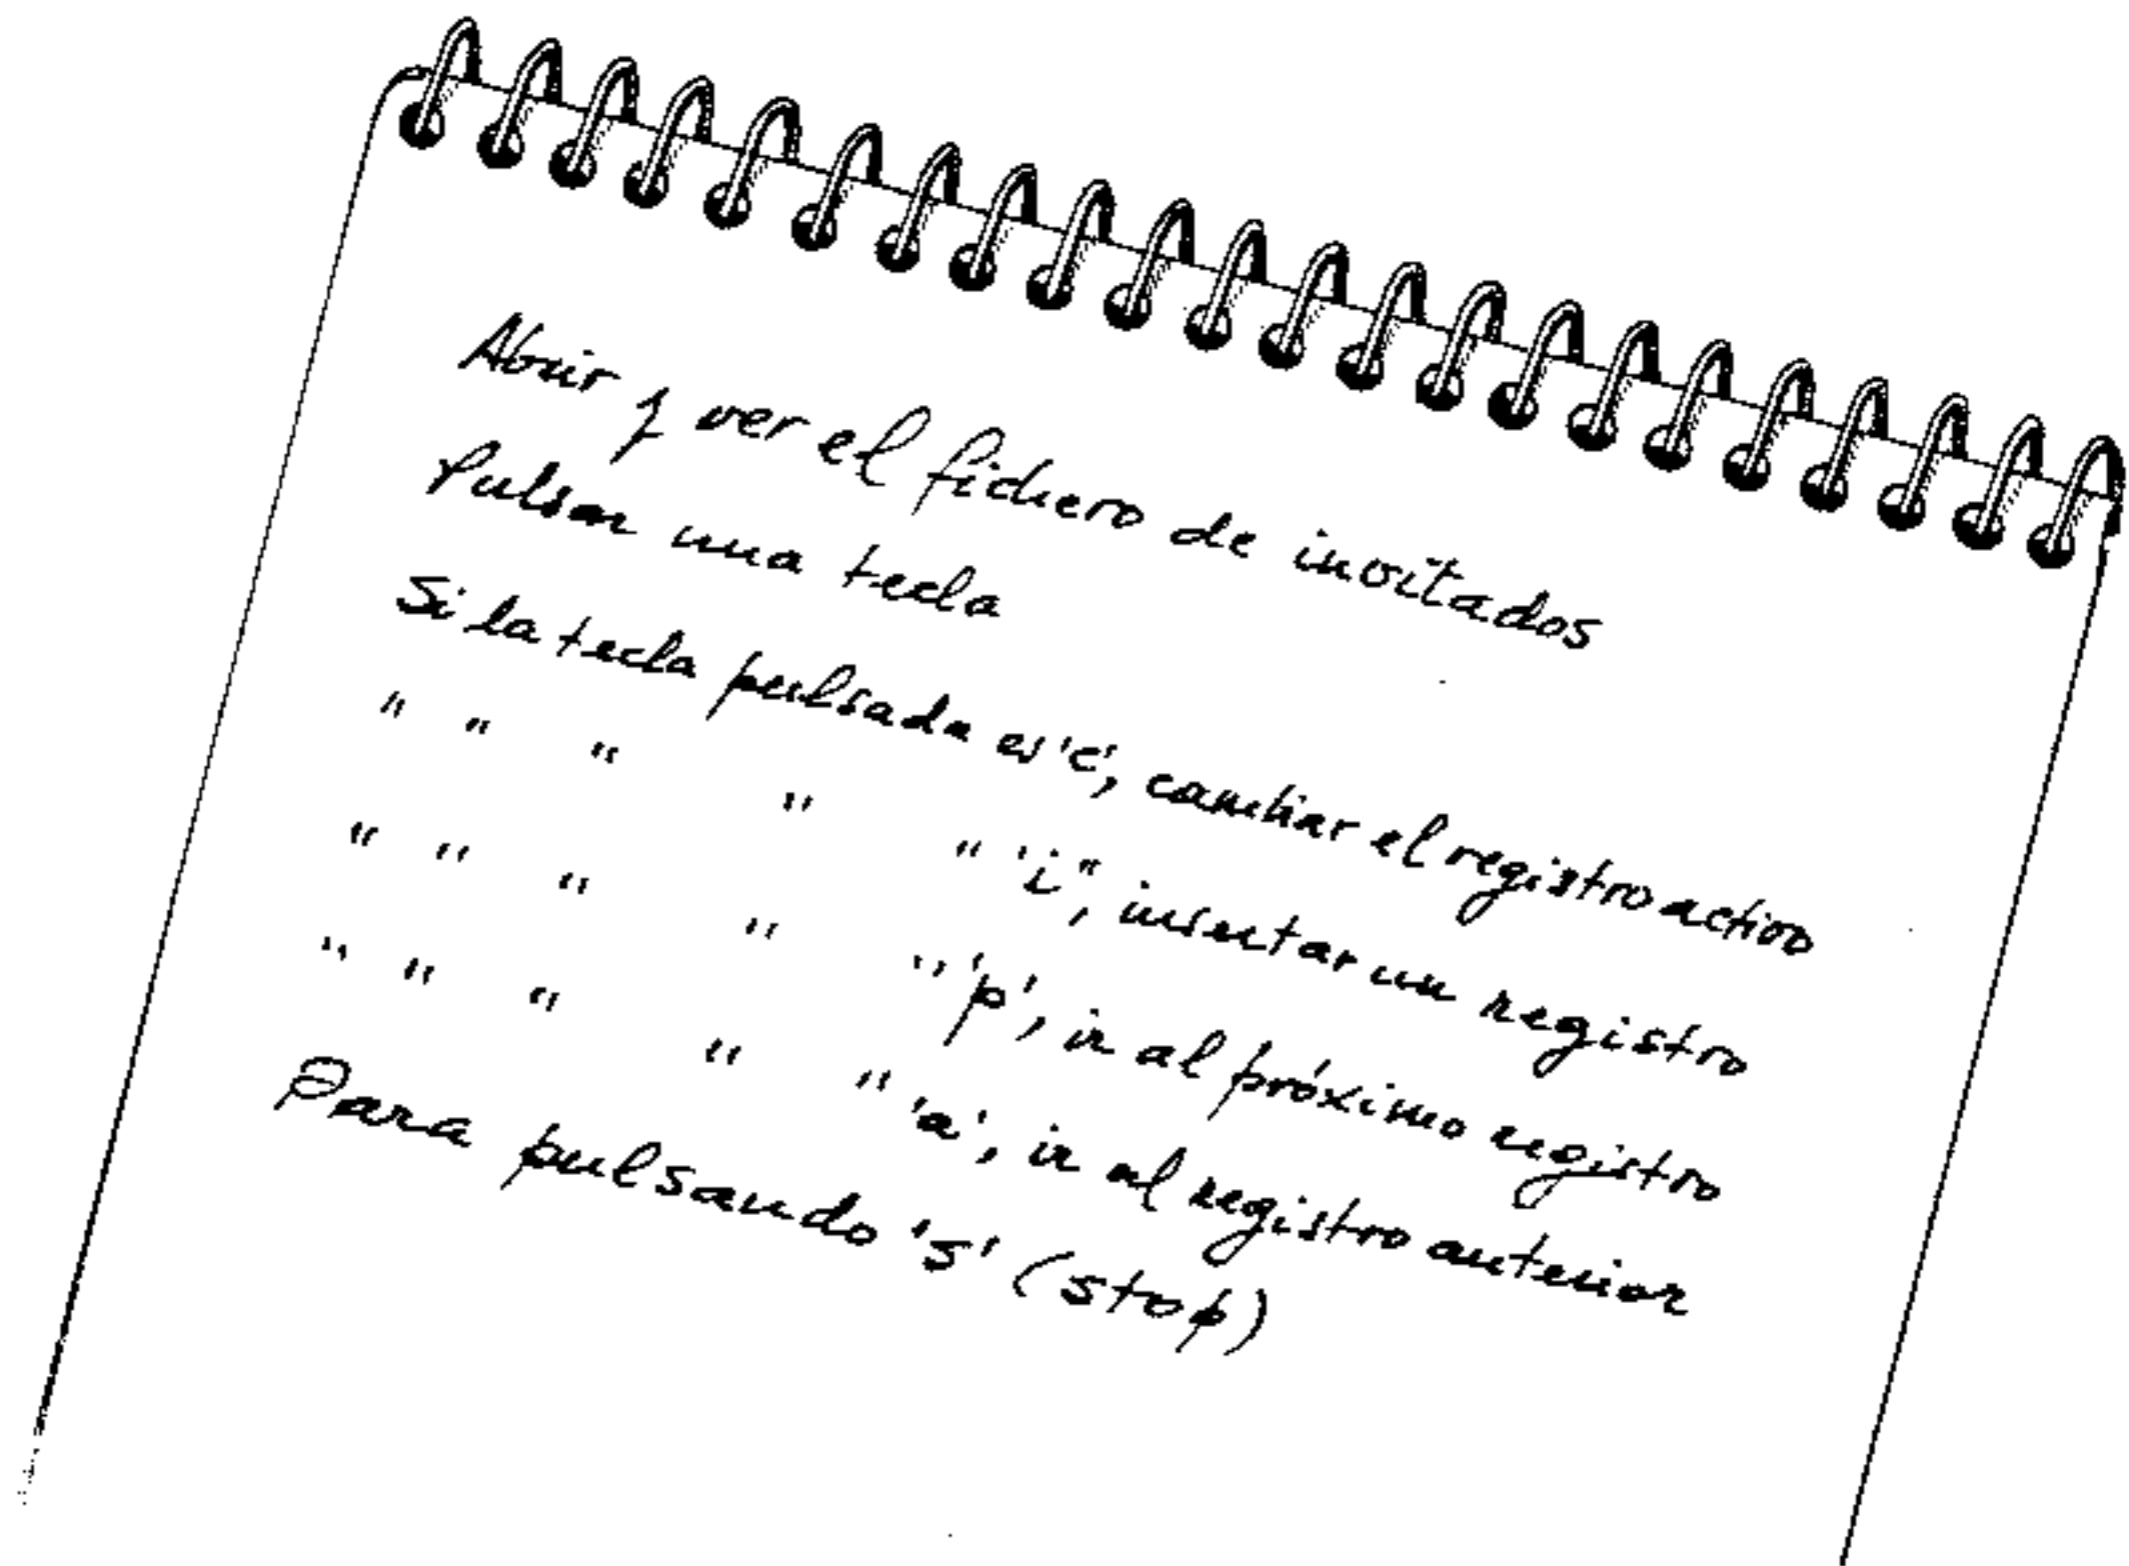 Abrir y ver el fichero de invitados
Pulsar una tecla
Si la tecla pulsada es 'c', cambiar el registro activo
" " " " " 'i', insertar un registro
" " " " " 'p', ir al próximo registro
" " " " " 'a', ir al registro anterior
Para pulsando 's' (stop)